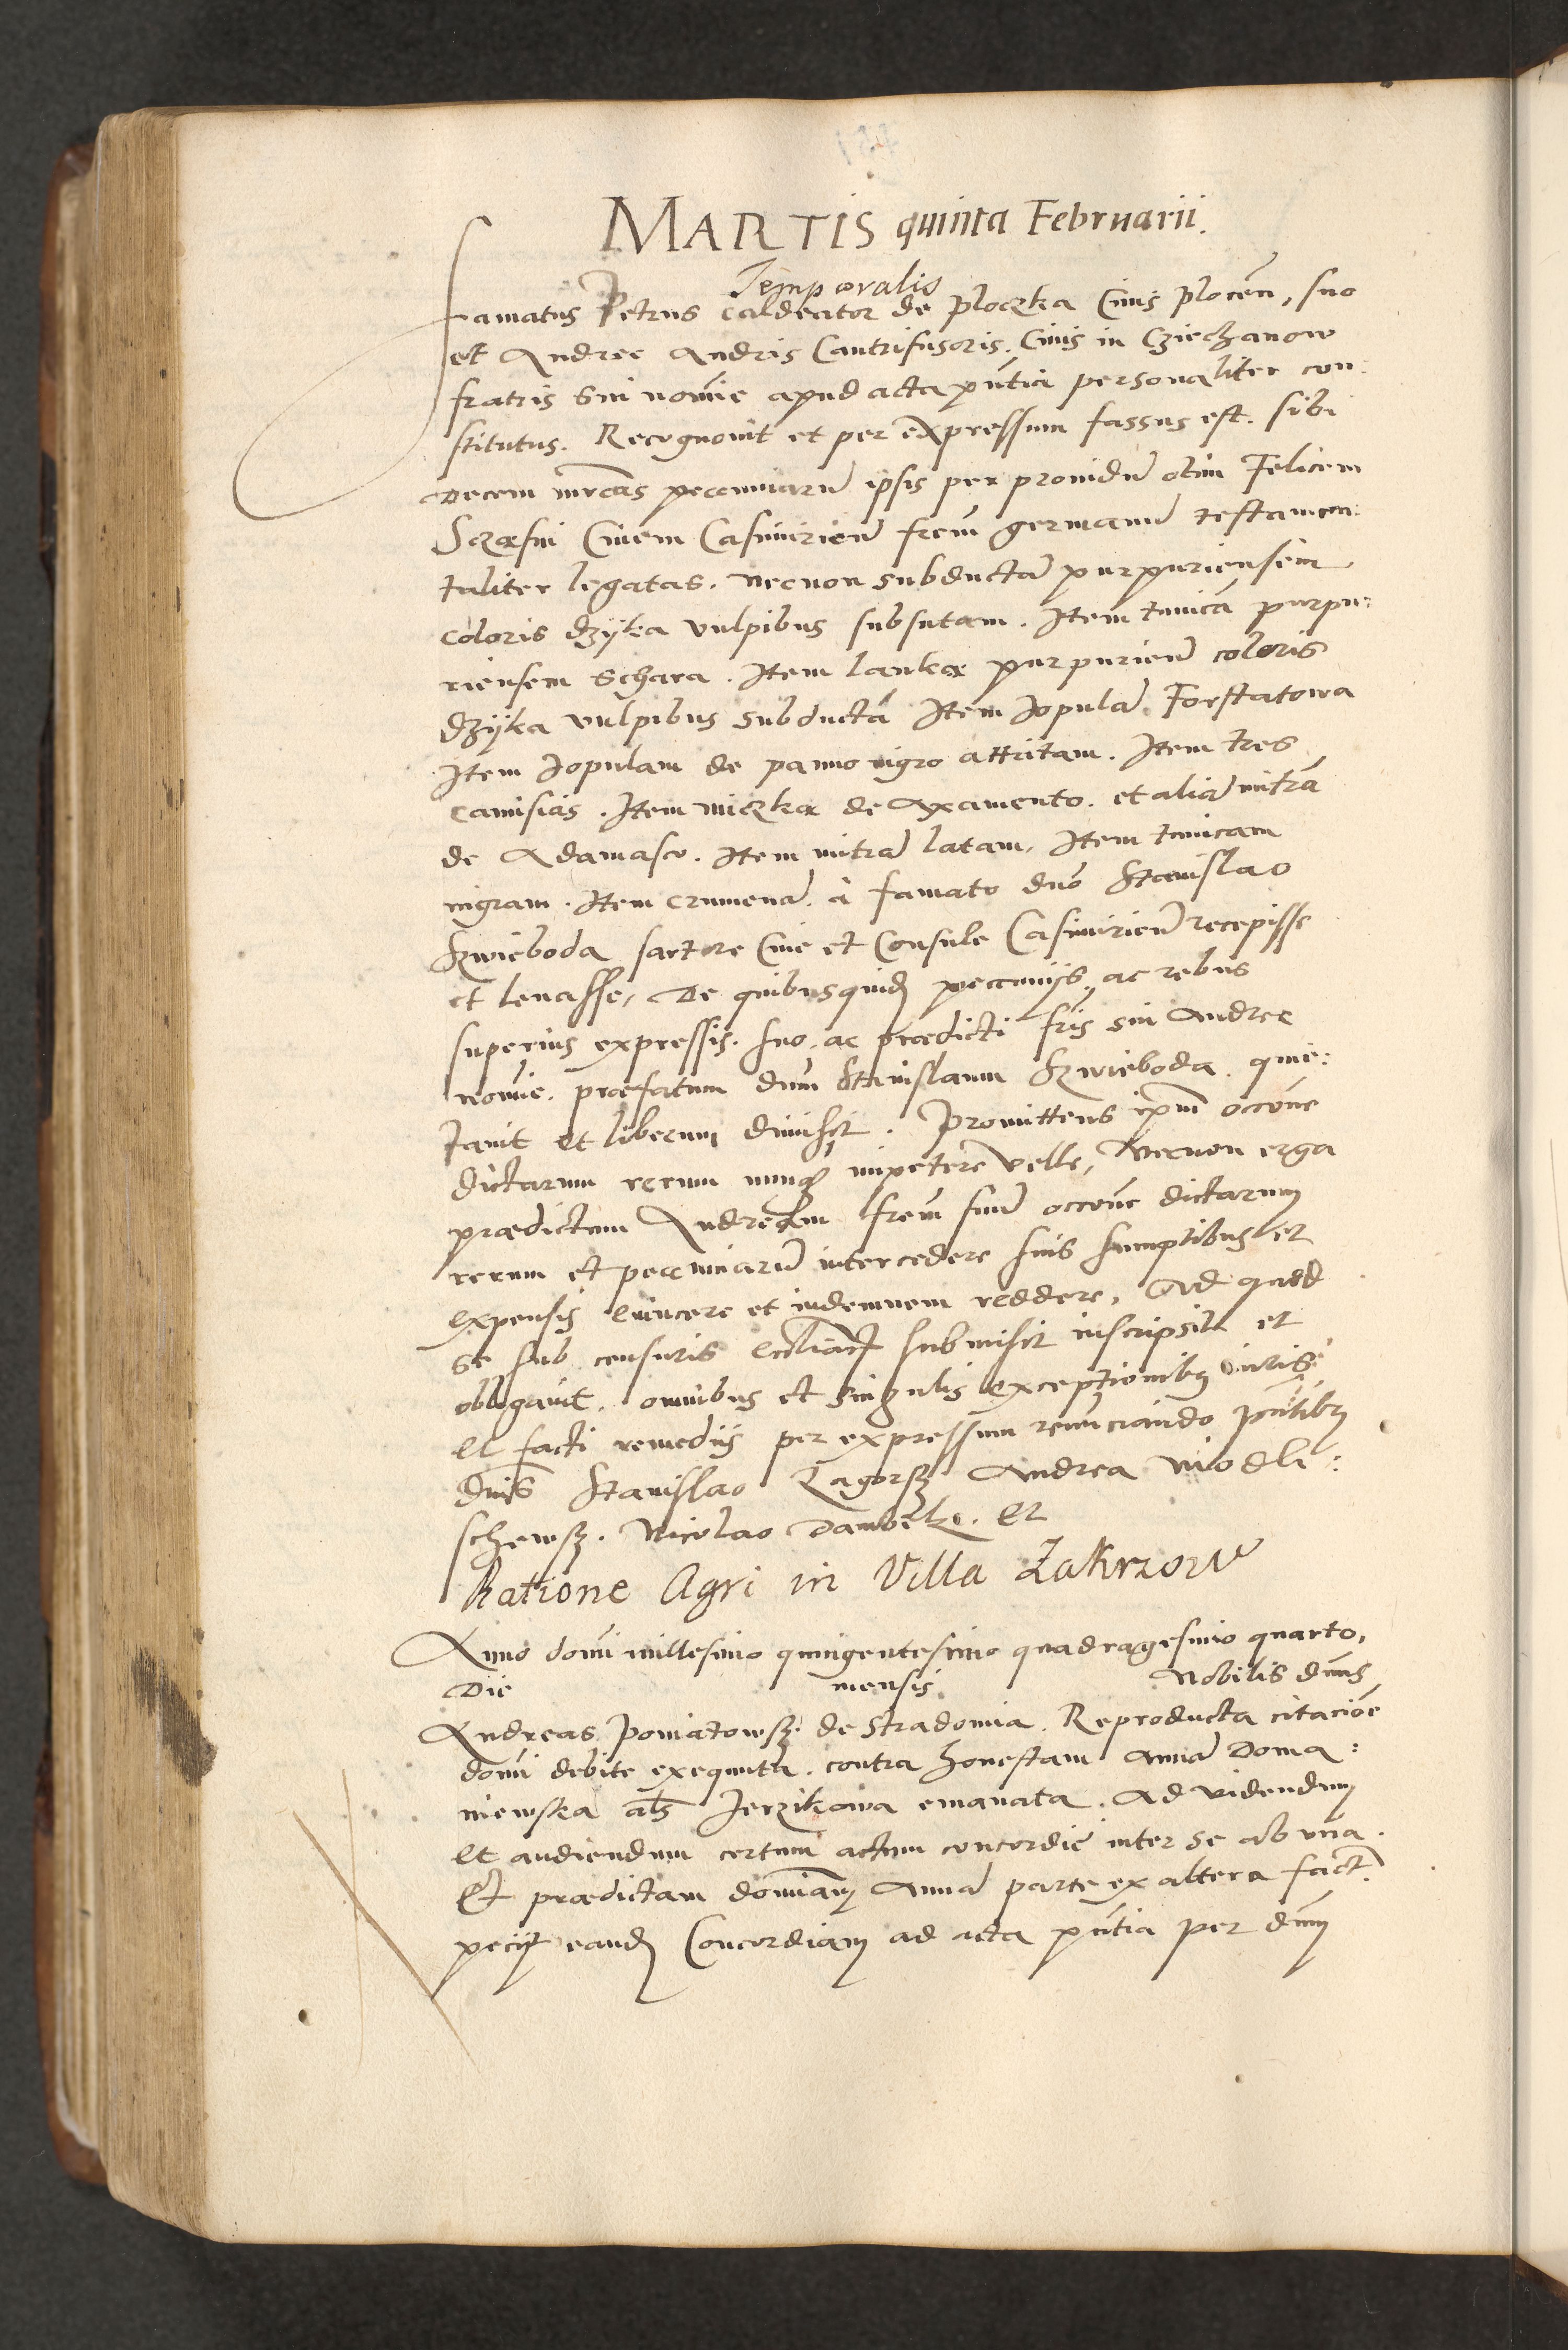 MARTIS quinta Februarii.
Temporalis
Famatus Petrus caldeator de Ploczka Civis plocen̄, suo
et Andree Andris Cantrifusoris. Civis in Cziechanow
fratris sui noīe apud acta p̄ntia personaliter con:
stitutus. Recognovit et per expressum fassus est. sibi
Decem mrcas pecuniarū ipsis per providū olim Felicem
Civem Casimirien̄ frēm germanū testamen:
taliter legatas. necnon subductā purpuriensem
coloris dzÿka vulpibus subsutam. Item tunicā purpu:
riensem schara. Item lanka purpurien̄ coloris
dzÿka vulpibus subductā Item Jopulā Forstatowa
Item Jopulam de panno nigro attritam. Item tres
camisias. Item miczka de Axamento. et aliā mitrā
de Adamasco. Item mitrā latam, Item tunicam
nigram. Item crumenā. à famato dno Stanislao
Szwieboda sartore Cive et Consule Casimirien̄ recepisse
et levasse, De quibusquid pecuniis, ac rebus
superius expressis. suo, ac prædicti fris sui Andree
noīe. præfatum dnm Stanislaum Szwieboda. quie:
tavit et liberum dimisit. Promittens ipm̄ occōne
dictarum rerum nunq̃ impetere velle, Necnon erga
prædictum Andream frēm suū occōne dictarum
rerum et pecuniarū intercedere suis sumptibus et
expensis evincere et indemnem reddere, Ad quod
se sub censuris ecclīact submisit inscripsit et
obligavit. omnibus et singulis exceptionibꝯ iuris
et facti remediis per expressum renunciando p̄ntibꝯ
dnis Stanislao Zagorsz Andrea Modli:
schewsz. Nicolao Dambek. et
Ratione Agri in Villa Zakrzow
Anno domī millesimo quingentesimo quadragesimo quarto,
Die mensis Nobilis dnus
Andreas Poniatowsz. de Stradomia. Reproducta citaciōe
domī debite exequuta. contra honestam Annā Doma:
niewska als Jerzikowa emanata. Ad videndum
et audiendum certum actum concordie inter se ab una.
Et prædictam domīam Annā parte ex altera fact.
peciit eand Concordiam ad acta p̄ntia per dnm